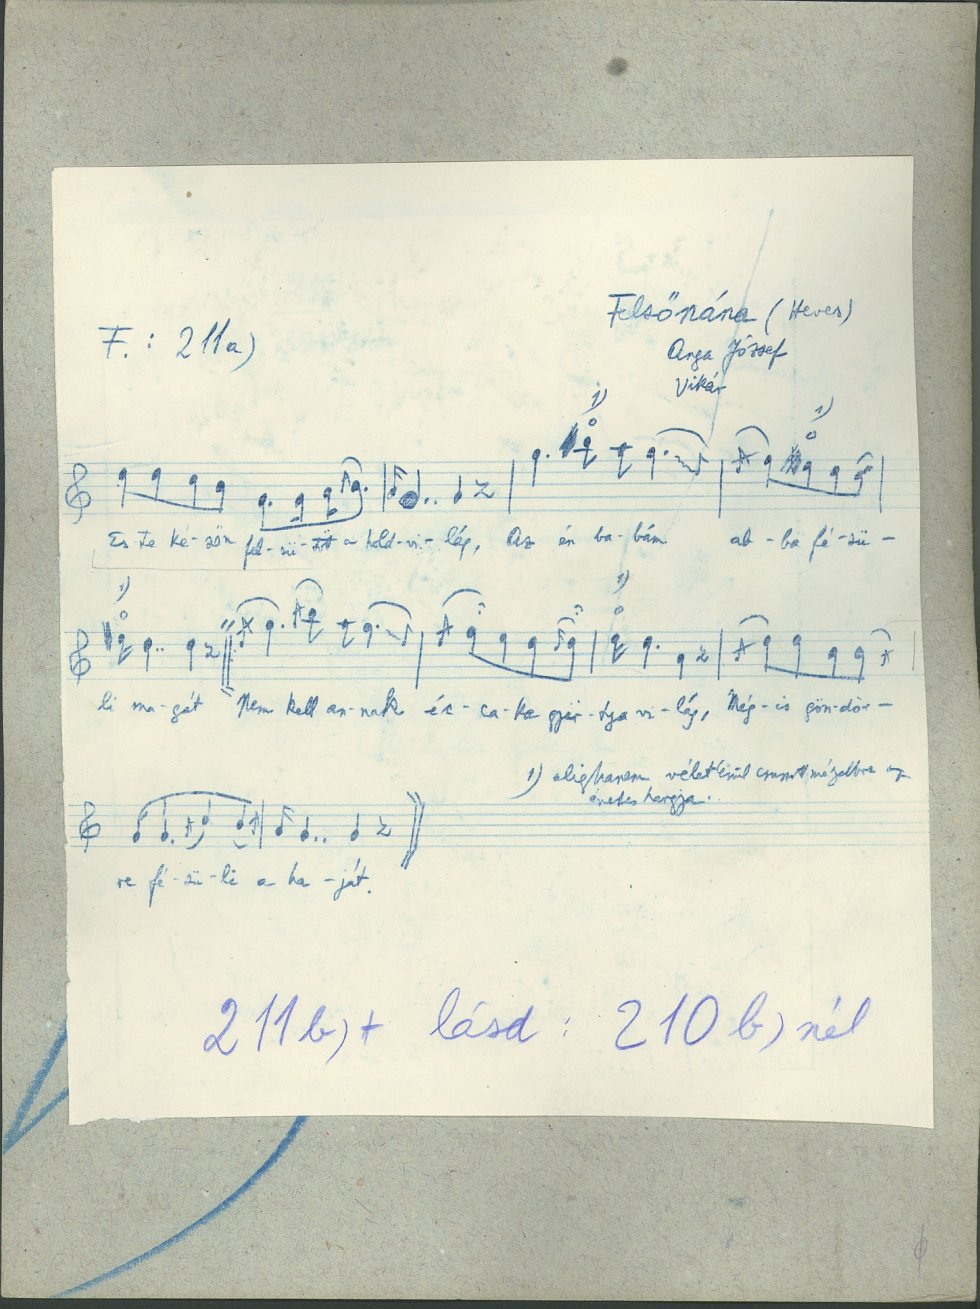 F.: 211a)
Felsőnána (Heves)
Arga József
Vikár
1) 1)
Es te ké-sőn fel-sü-tö a hold-vi-lág, Az én ba-bám ab-ba fé-sü-
1) 1)
li ma-gát Nem kell an-nak éc-ca-ka gyër-tya vi-lág, Még-is gön-dör-
1) alighanem véletlenül csuszott mélyebbre az
énekes hangja.
re fé-sü-li a ha-ját.
211b)+ lásd: 210b) nél